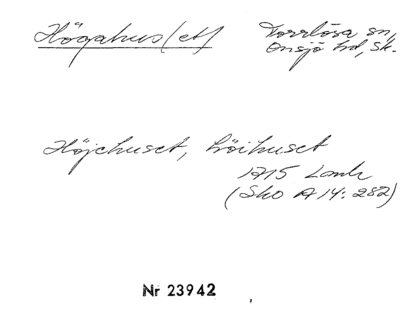 Högahus(et)
Torrlösa sn,
Onsjö hd, Sk.
Höjehuset, höihuset
1715 Lantr
(Sko A 14: 282)
Nr 23942